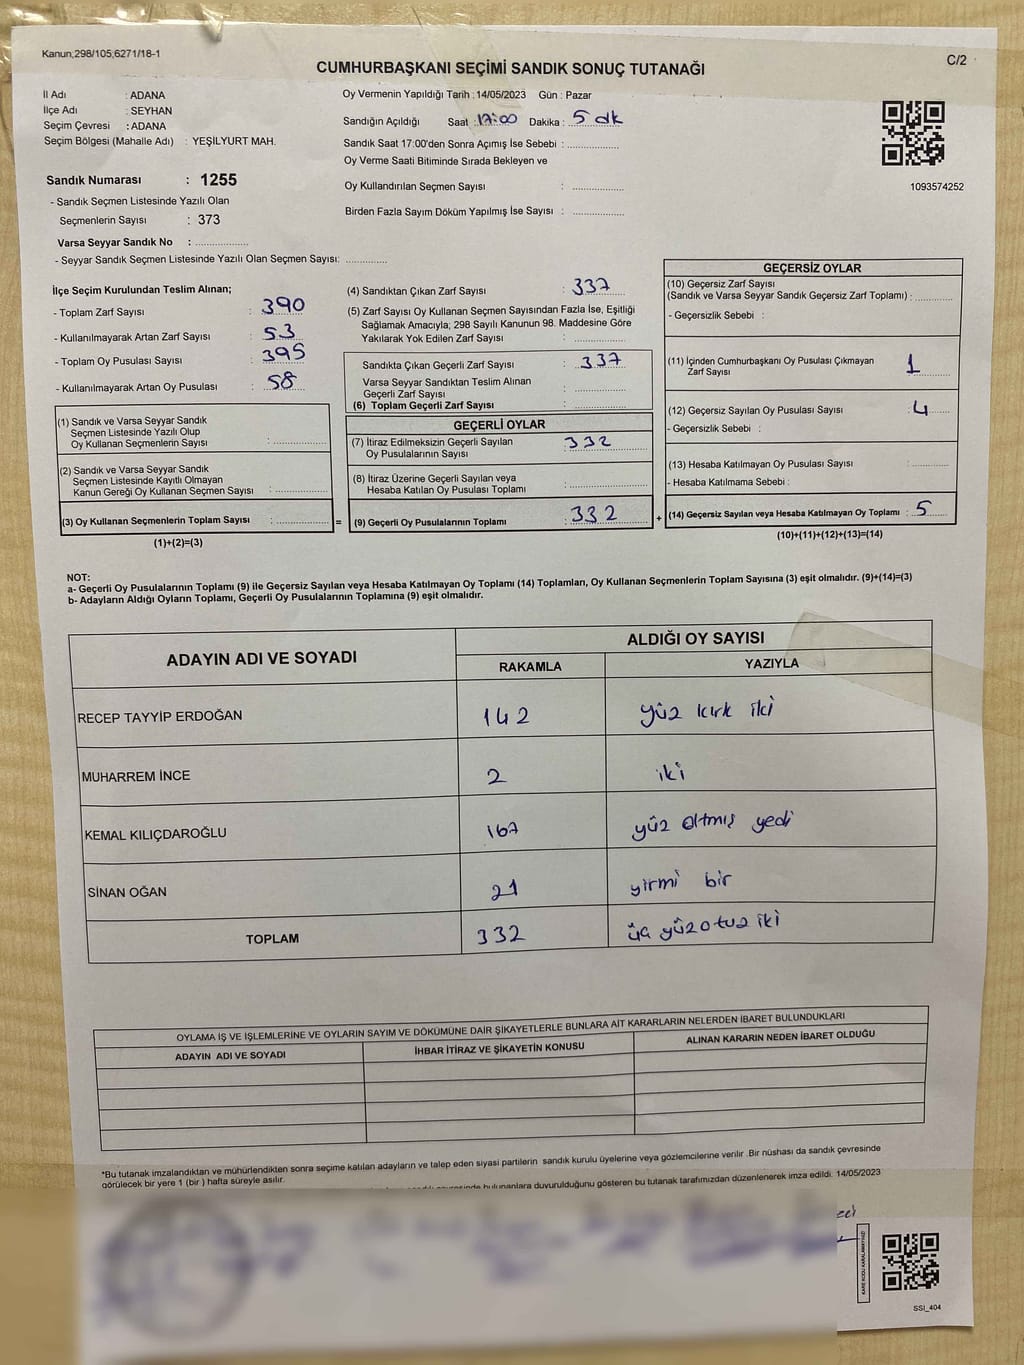 Kanun;298/105;6271/18-1
C/2
CUMHURBAŞKANI SEÇİMİ SANDIK SONUÇ TUTANAĞI
İl Adı : ADANA
İlçe Adı : SEYHAN
Seçim Çevresi : ADANA
Seçim Bölgesi (Mahalle Adı) : YEŞİLYURT MAH.
Sandık Numarası : 1255
- Sandık Seçmen Listesinde Yazılı Olan
Seçmenlerin Sayısı : 373
Varsa Seyyar Sandık No : ..................
- Seyyar Sandık Seçmen Listesinde Yazılı Olan Seçmen Sayısı: ..............
Oy Vermenin Yapıldığı Tarih : 14/05/2023 Gün : Pazar
Sandığın Açıldığı Saat : 17:00 Dakika : 5 dk
Sandık Saat 17:00'den Sonra Açımış İse Sebebi : ..................
Oy Verme Saati Bitiminde Sırada Bekleyen ve
Oy Kullandırılan Seçmen Sayısı : ..................
Birden Fazla Sayım Döküm Yapılmış İse Sayısı : ..................
1093574252
İlçe Seçim Kurulundan Teslim Alınan;
- Toplam Zarf Sayısı : 390
- Kullanılmayarak Artan Zarf Sayısı : 53
- Toplam Oy Pusulası Sayısı : 395
- Kullanılmayarak Artan Oy Pusulası : 58
(1) Sandık ve Varsa Seyyar Sandık
Seçmen Listesinde Yazılı Olup
Oy Kullanan Seçmenlerin Sayısı : ..................
(2) Sandık ve Varsa Seyyar Sandık
Seçmen Listesinde Kayıtlı Olmayan
Kanun Gereği Oy Kullanan Seçmen Sayısı : ..................
(3) Oy Kullanan Seçmenlerin Toplam Sayısı : ..................
(1)+(2)=(3)
=
(4) Sandıktan Çıkan Zarf Sayısı : 337
(5) Zarf Sayısı Oy Kullanan Seçmen Sayısından Fazla İse, Eşitliği
Sağlamak Amacıyla; 298 Sayılı Kanunun 98. Maddesine Göre
Yakılarak Yok Edilen Zarf Sayısı : ..................
Sandıkta Çıkan Geçerli Zarf Sayısı : 337
Varsa Seyyar Sandıktan Teslim Alınan
Geçerli Zarf Sayısı : ..................
(6) Toplam Geçerli Zarf Sayısı : ..................
GEÇERLİ OYLAR
(7) İtiraz Edilmeksizin Geçerli Sayılan
Oy Pusulalarının Sayısı : 332
(8) İtiraz Üzerine Geçerli Sayılan veya
Hesaba Katılan Oy Pusulası Toplamı : ..................
(9) Geçerli Oy Pusulalarının Toplamı : 332
+
GEÇERSİZ OYLAR
(10) Geçersiz Zarf Sayısı
(Sandık ve Varsa Seyyar Sandık Geçersiz Zarf Toplamı) : ..............
- Geçersizlik Sebebi :
(11) İçinden Cumhurbaşkanı Oy Pusulası Çıkmayan
Zarf Sayısı : 1
(12) Geçersiz Sayılan Oy Pusulası Sayısı : 4
- Geçersizlik Sebebi :
(13) Hesaba Katılmayan Oy Pusulası Sayısı : ..............
- Hesaba Katılmama Sebebi :
(14) Geçersiz Sayılan veya Hesaba Katılmayan Oy Toplamı : 5
(10)+(11)+(12)+(13)=(14)
NOT:
a- Geçerli Oy Pusulalarının Toplamı (9) ile Geçersiz Sayılan veya Hesaba Katılmayan Oy Toplamı (14) Toplamları, Oy Kullanan Seçmenlerin Toplam Sayısına (3) eşit olmalıdır. (9)+(14)=(3)
b- Adayların Aldığı Oyların Toplamı, Geçerli Oy Pusulalarının Toplamına (9) eşit olmalıdır.
ADAYIN ADI VE SOYADI
ALDIĞI OY SAYISI
RAKAMLA YAZIYLA
RECEP TAYYİP ERDOĞAN 142 yüz kırk iki
MUHARREM İNCE 2 iki
KEMAL KILIÇDAROĞLU 167 yüz altmış yedi
SİNAN OĞAN 21 yirmi bir
TOPLAM 332 üç yüz otuz iki
OYLAMA İŞ VE İŞLEMLERİNE VE OYLARIN SAYIM VE DÖKÜMÜNE DAİR ŞİKAYETLERLE BUNLARA AİT KARARLARIN NELERDEN İBARET BULUNDUKLARI
ADAYIN ADI VE SOYADI İHBAR İTİRAZ VE ŞİKAYETİN KONUSU ALINAN KARARIN NEDEN İBARET OLDUĞU
*Bu tutanak imzalandıktan ve mühürlendikten sonra seçime katılan adayların ve talep eden siyasi partilerin sandık kurulu üyelerine veya gözlemcilerine verilir .Bir nüshası da sandık çevresinde
görülecek bir yere 1 (bir ) hafta süreyle asılır.
bulunanlara duyurulduğunu gösteren bu tutanak tarafımızdan düzenlenerek imza edildi. 14/05/2023
KARE KODU KARALAMAYINIZ!
SSI_404